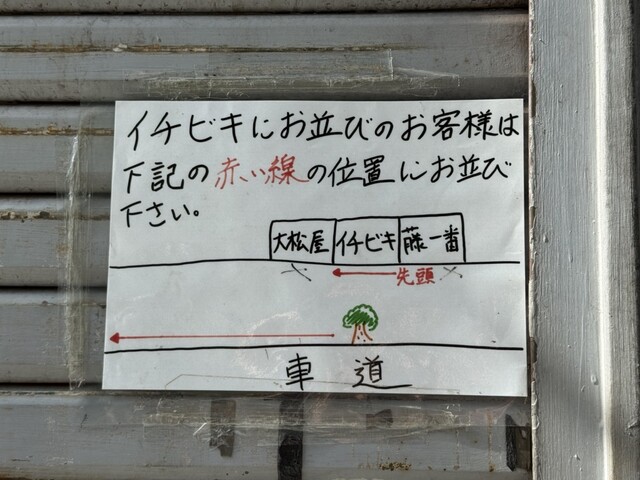 イチビキにお並びのお客様は
下記の赤い線の位置にお並び
下さい。
大松屋 イチビキ 藤一番
先頭
車道